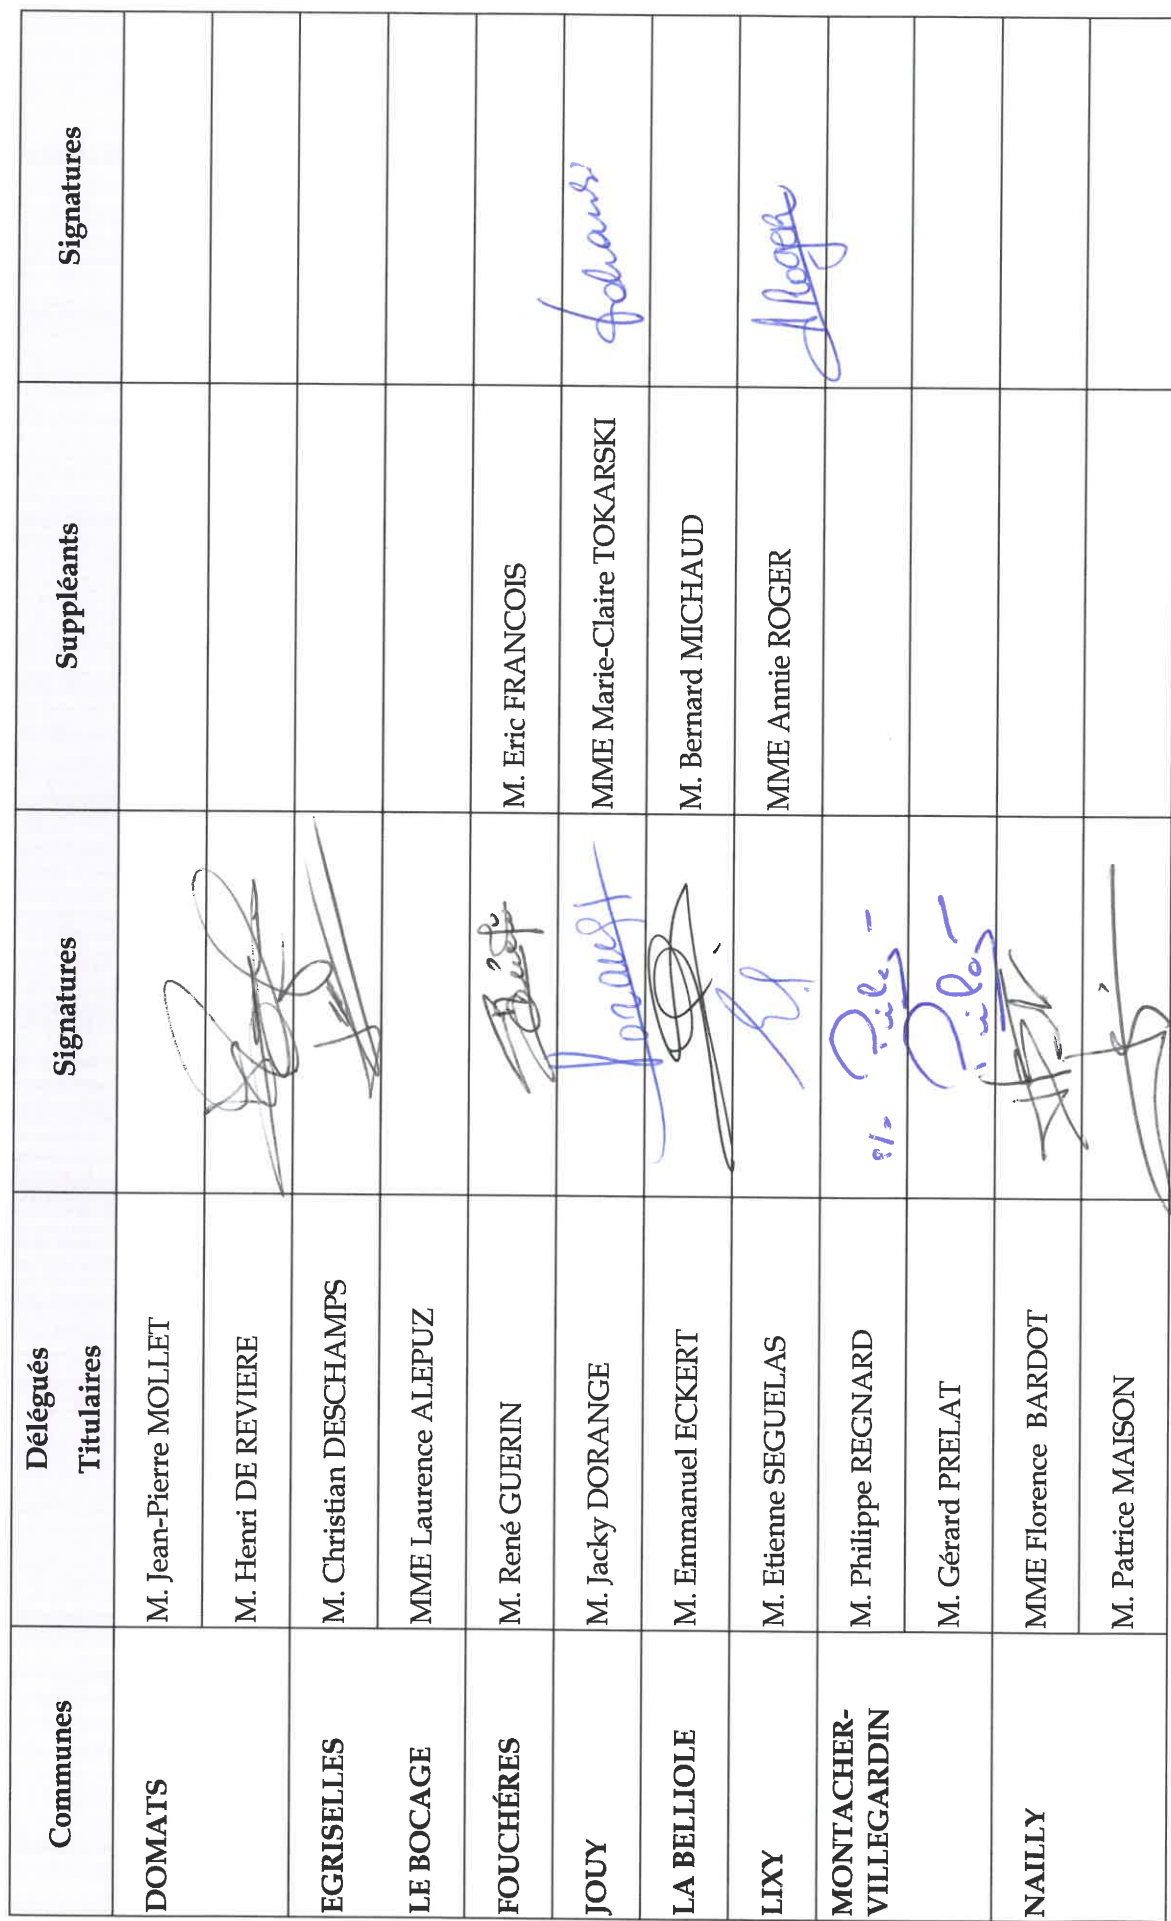 Communes
Délégués
Titulaires
Signatures
Suppléants
Signatures
DOMATS
M. Jean-Pierre MOLLET
M. Henri DE REVIERE
EGRISELLES
M. Christian DESCHAMPS
LE BOCAGE
MME Laurence ALEPUZ
FOUCHÉRES
M. René GUERIN
M. Eric FRANCOIS
JOUY
M. Jacky DORANGE
MME Marie-Claire TOKARSKI
LA BELLIOLE
M. Emmanuel ECKERT
M. Bernard MICHAUD
LIXY
M. Etienne SEGUELAS
MME Annie ROGER
ARoger
MONTACHER-
VILLEGARDIN
M. Philippe REGNARD
M. Gérard PRELAT
NAILLY
MME Florence BARDOT
M. Patrice MAISON